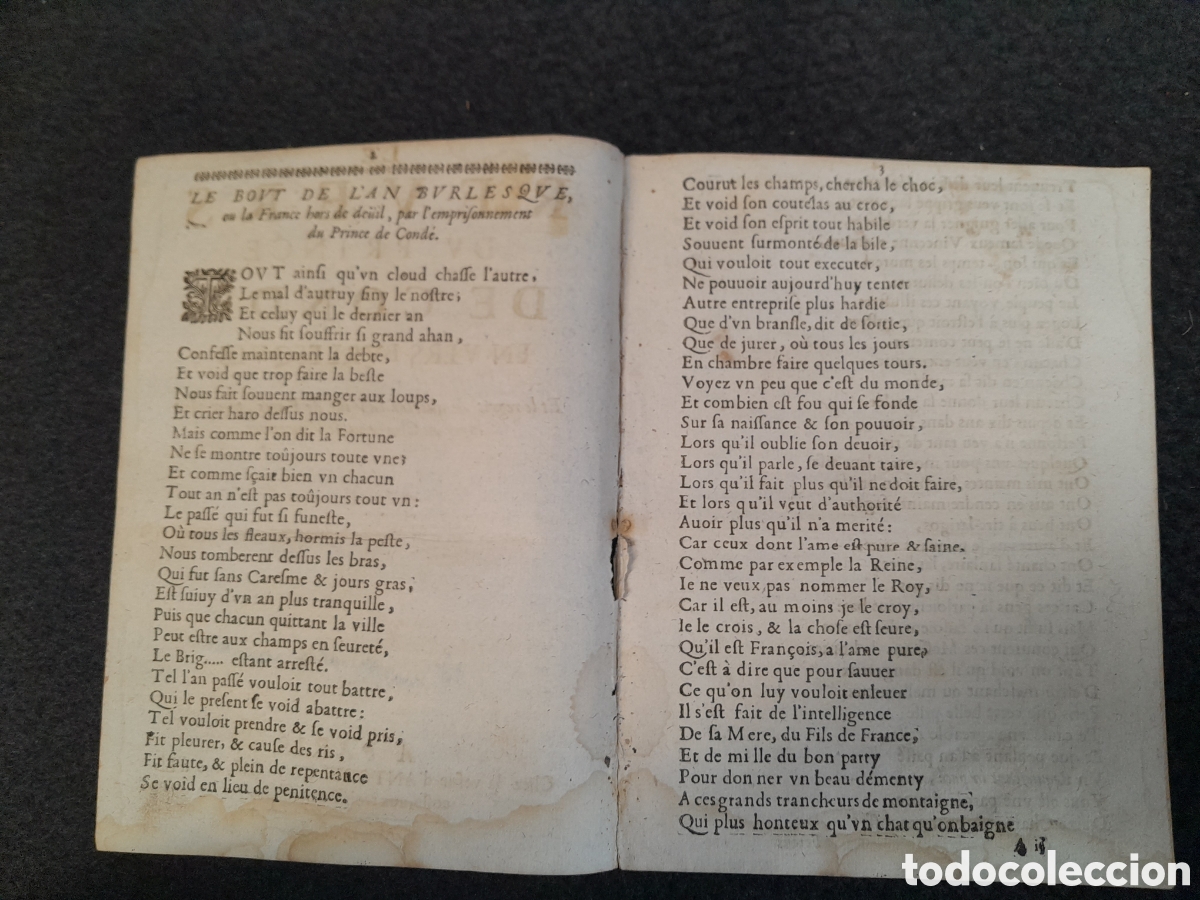 2
LE BOVT DE L'AN BVRLESQVE,
ou la France hors de deüil, par l'emprisonnement
du Prince de Condé.
TOVT ainsi qu'vn cloud chasse l'autre,
Le mal d'autruy finy le nostre;
Et celuy qui le dernier an
Nous fit souffrir si grand ahan,
Confesse maintenant la debte,
Et void que trop faire la beste
Nous fait souuent manger aux loups,
Et crier haro dessus nous.
Mais comme l'on dit la Fortune
Ne se montre toûjours toute vne;
Et comme sçait bien vn chacun
Tout an n'est pas toûjours tout vn:
Le passé qui fut si funeste,
Où tous les fleaux, hormis la peste,
Nous tomberent dessus les bras,
Qui fut sans Caresme & jours gras,
Est suiuy d'vn an plus tranquille,
Puis que chacun quittant la ville
Peut estre aux champs en seureté,
Le Brig..... estant arresté.
Tel l'an passé vouloit tout battre,
Qui le present se void abattre:
Tel vouloit prendre & se void pris,
Fit pleurer, & cause des ris,
Fit faute, & plein de repentance
Se void en lieu de penitence.
3
Courut les champs, chercha le choc,
Et void son coutelas au croc,
Et void son esprit tout habile
Souuent surmonté de la bile,
Qui vouloit tout executer,
Ne pouuoir aujourd'huy tenter
Autre entreprise plus hardie
Que d'vn bransle, dit de sortie,
Que de jurer, où tous les jours
En chambre faire quelques tours.
Voyez vn peu que c'est du monde,
Et combien est fou qui se fonde
Sur sa naissance & son pouuoir,
Lors qu'il oublie son deuoir,
Lors qu'il parle, se deuant taire,
Lors qu'il fait plus qu'il ne doit faire,
Et lors qu'il veut d'authorité
Auoir plus qu'il n'a merité:
Car ceux dont l'ame est pure & saine,
Comme par exemple la Reine,
Ie ne veux pas nommer le Roy,
Car il est, au moins je le croy,
Ie le crois, & la chose est seure,
Qu'il est François, a l'ame pure,
C'est à dire que pour sauuer
Ce qu'on luy vouloit enleuer
Il s'est fait de l'intelligence
De sa Mere, du Fils de France,
Et de mi lle du bon party
Pour don ner vn beau démenty
A ces grands trancheurs de montaigne,
Qui plus honteux qu'vn chat qu'on baigne
A ij
todocoleccion